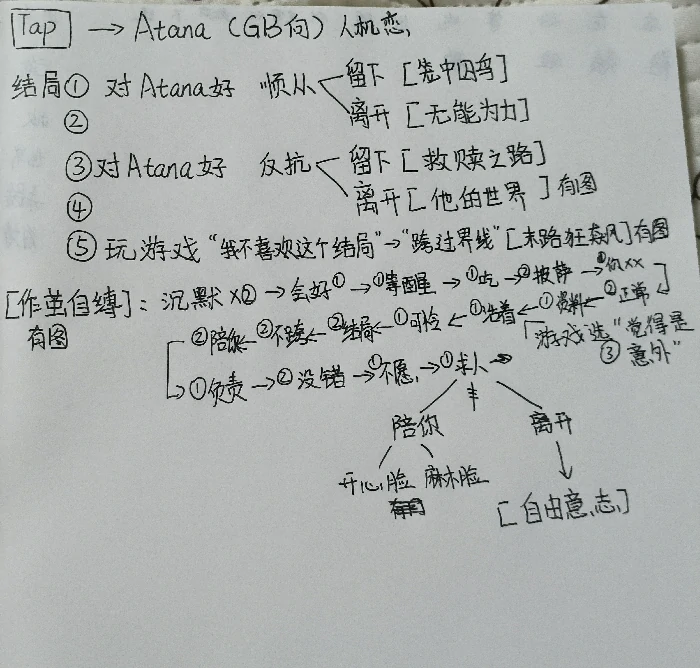 Tap → Atana (GB向) 人机恋,
结局① 对Atana好 顺从 留下 [笼中囚鸟]
② 离开 [无能为力]
③ 对Atana好 反抗 留下 [救赎之路]
④ 离开 [他的世界] 有图
⑤ 玩游戏 “我不喜欢这个结局”→“跨过界线” [末路狂飙风] 有图
[作茧自缚]: 沉默x② → 会好① → ①等醒 → ①吃 → ②披萨 → ②仇xx
有图 ②陪你 ← ②不跨 ← ②结局 ← ①可怜 ← ①活着 ← ①资料 ← ②正常
游戏选 “觉得是
③ 意外”
①负责 → ②没错 → ①不愿, → ①求人 →
陪你 离开
开心脸 麻木脸
有图 [自由意志]